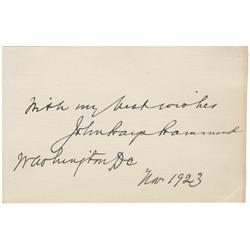 With my best wishes
John Hays Hammond
Washington, DC
Nov 1923